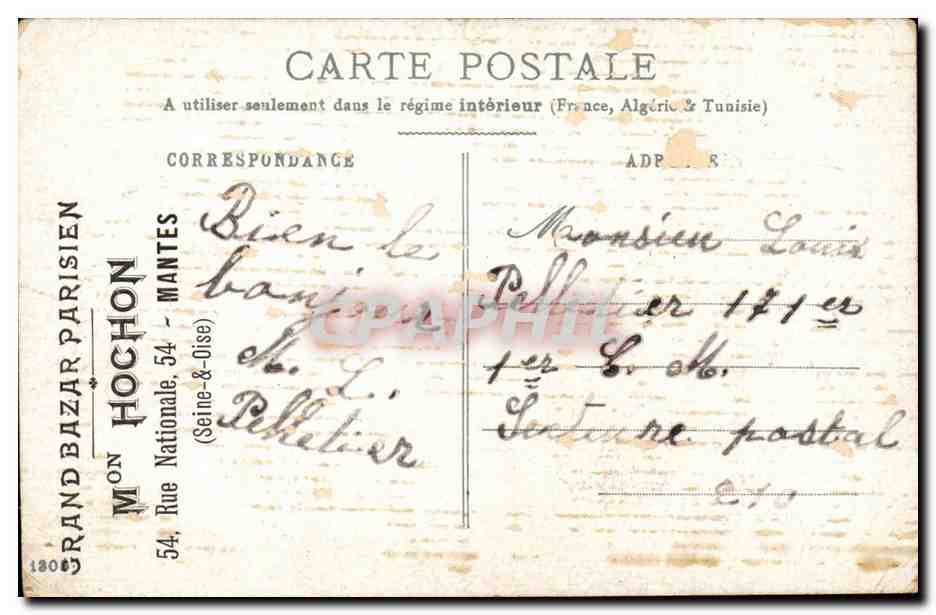 CARTE POSTALE
A utiliser seulement dans le régime intérieur (France, Algérie & Tunisie)
CORRESPONDANCE
GRAND BAZAR PARISIEN
Mon HOCHON
54, Rue Nationale, 54 - MANTES
(Seine-&-Oise)
Bien le
bonjour
M. L.
Pelletier
Monsieur Louis
Pelletier 171er
1er C. M.
postal
210
CPAPHIL